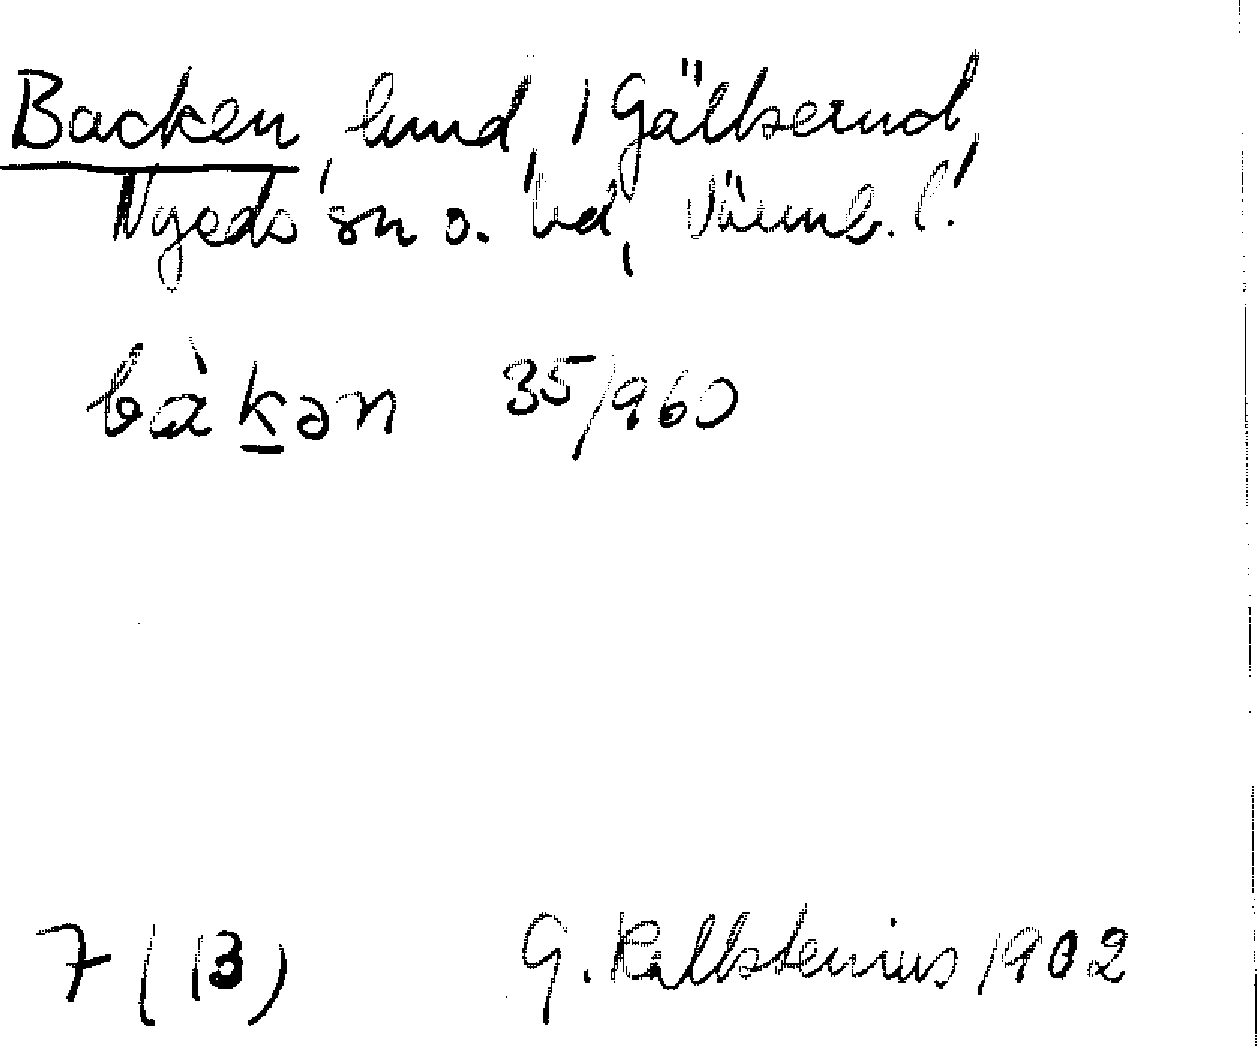 Backen, lund, i Gällserud,
Nyeds sn o. hd, Värml. l.
bàkən 35/960
7 (13) G. Kallstenius 1902